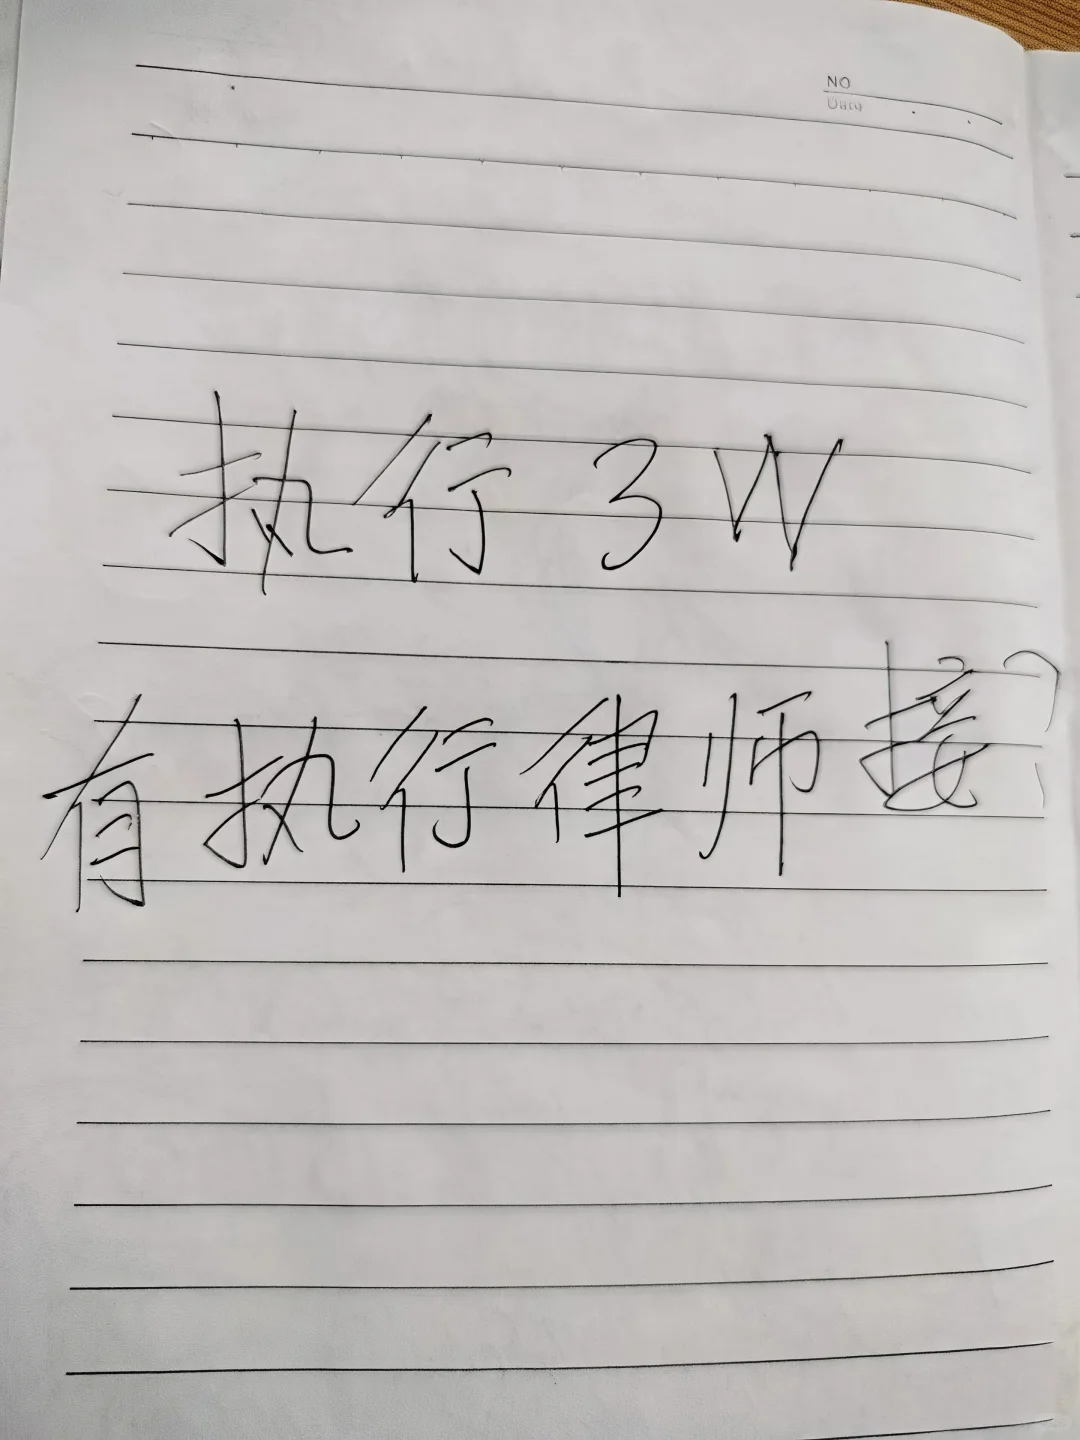 NO
Date
执行3W
有执行律师接?